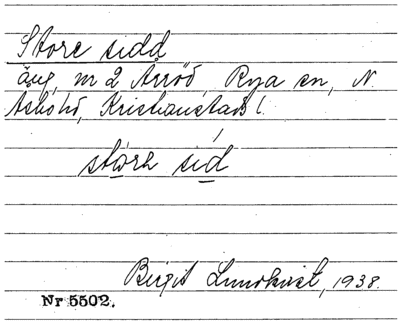 Store sidd
äng, nr 2 Årröd Rya sn, N.
Åsbo hd, Kristianstads l.
stårə sid
Birgit Lundkvist, 1938.
Nr 5502.